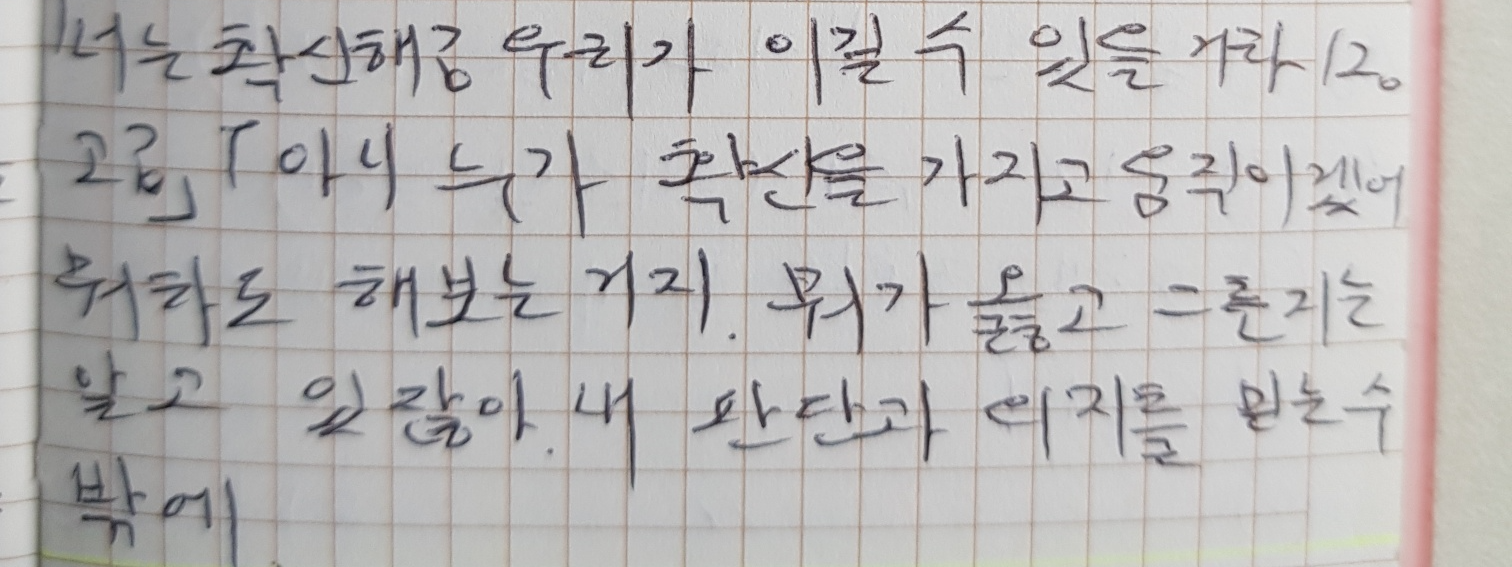 너는 확신해? 우리가 이길 수 있을 거라
고? 「아니 누가 확신을 가지고 움직이겠어
뭐라도 해보는 거지. 뭐가 옳고 그른지는
알고 있잖아. 내 판단과 의지를 믿는 수
밖에